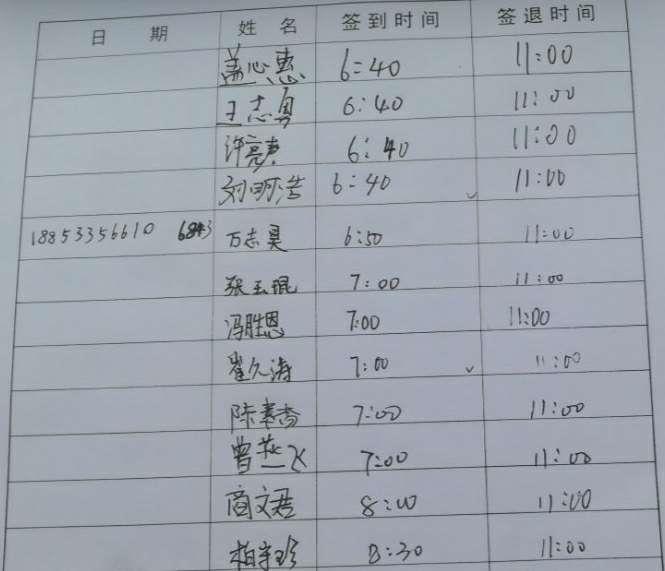 日期 姓名 签到时间 签退时间
盖心惠 6:40 11:00
王志勇 6:40 11:00
许亮 6:40 11:00
刘明浩 6:40 11:00
18853356610 6843 万志昊 6:50 11:00
张玉琨 7:00 11:00
冯胜恩 7:00 11:00
崔久涛 7:00 11:00
陈春香 7:00 11:00
曾燕飞 7:00 11:00
商文君 8:00 11:00
柏 珍 8:30 11:00